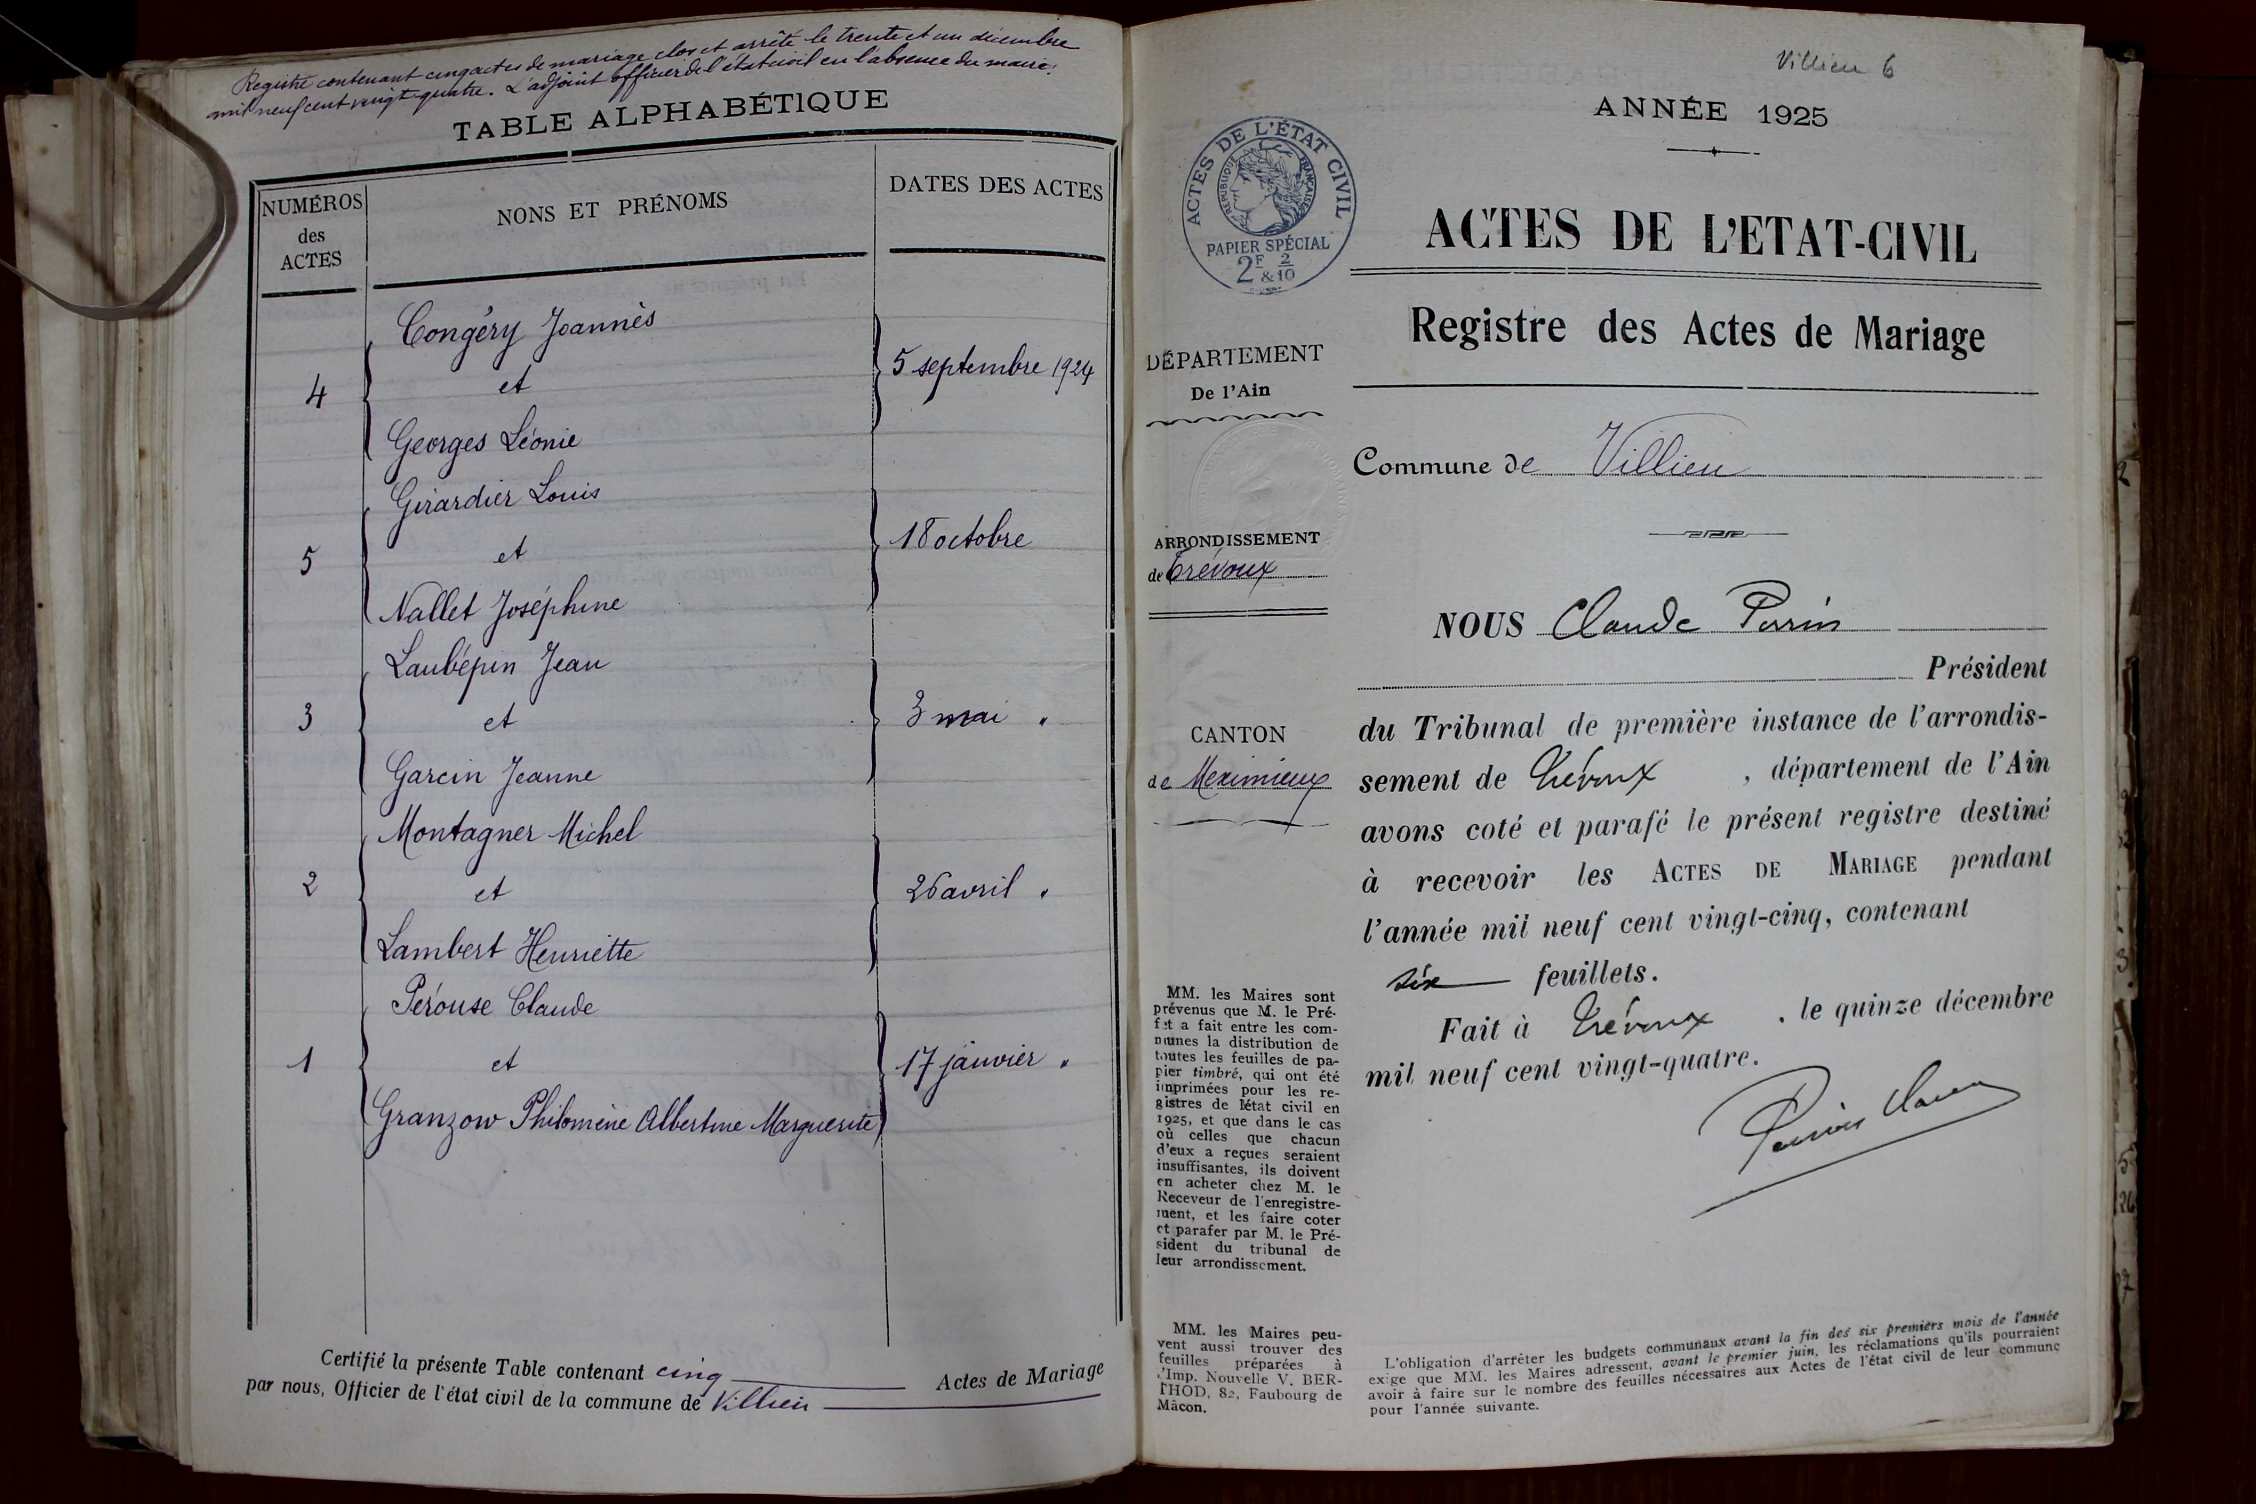 Registre contenant cinq actes de mariage clos et arrêté le trente et un décembre
mil neuf cent vingt-quatre. L'adjoint officier de l'état civil en l'absence du maire:
TABLE ALPHABÉTIQUE
NUMÉROS
des
ACTES
NONS ET PRÉNOMS
DATES DES ACTES
Congéry Joannès
4 et 5 septembre 1924
Georges Léonie
Girardier Louis
5 et 18 octobre
Nallet Joséphine
Laubépin Jean
3 et 3 mai "
Garcin Jeanne
Montagner Michel
2 et 26 avril "
Lambert Henriette
Pérouse Claude
1 et 17 janvier "
Granzow Philomène Albertine Marguerite
Certifié la présente Table contenant cinq Actes de Mariage
par nous, Officier de l'état civil de la commune de Villieu
Villieu 6
ANNÉE 1925
ACTES DE L'ÉTAT CIVIL
RÉPUBLIQUE FRANÇAISE
PAPIER SPÉCIAL
2F & 2/10
ACTES DE L'ETAT-CIVIL
Registre des Actes de Mariage
DÉPARTEMENT
De l'Ain
Commune de Villieu
ARRONDISSEMENT
de Trévoux
CANTON
de Meximieux
NOUS Claude Perrin
Président
du Tribunal de première instance de l'arrondis-
sement de Trévoux, département de l'Ain
avons coté et parafé le présent registre destiné
à recevoir les ACTES DE MARIAGE pendant
l'année mil neuf cent vingt-cinq, contenant
six feuillets.
Fait à Trévoux, le quinze décembre
mil neuf cent vingt-quatre.
Perrin Claude
MM. les Maires sont
prévenus que M. le Pré-
fet a fait entre les com-
munes la distribution de
toutes les feuilles de pa-
pier timbré, qui ont été
imprimées pour les re-
gistres de l'état civil en
1925, et que dans le cas
où celles que chacun
d'eux a reçues seraient
insuffisantes, ils doivent
en acheter chez M. le
Receveur de l'enregistre-
ment, et les faire coter
et parafer par M. le Pré-
sident du tribunal de
leur arrondissement.
MM. les Maires peu-
vent aussi trouver des
feuilles préparées à
l'Imp. Nouvelle V. BER-
THOD, 82, Faubourg de
Mâcon.
L'obligation d'arrêter les budgets communaux avant la fin des six premiers mois de l'année
exige que MM. les Maires adressent, avant le premier juin, les réclamations qu'ils pourraient
avoir à faire sur le nombre des feuilles nécessaires aux Actes de l'état civil de leur commune
pour l'année suivante.